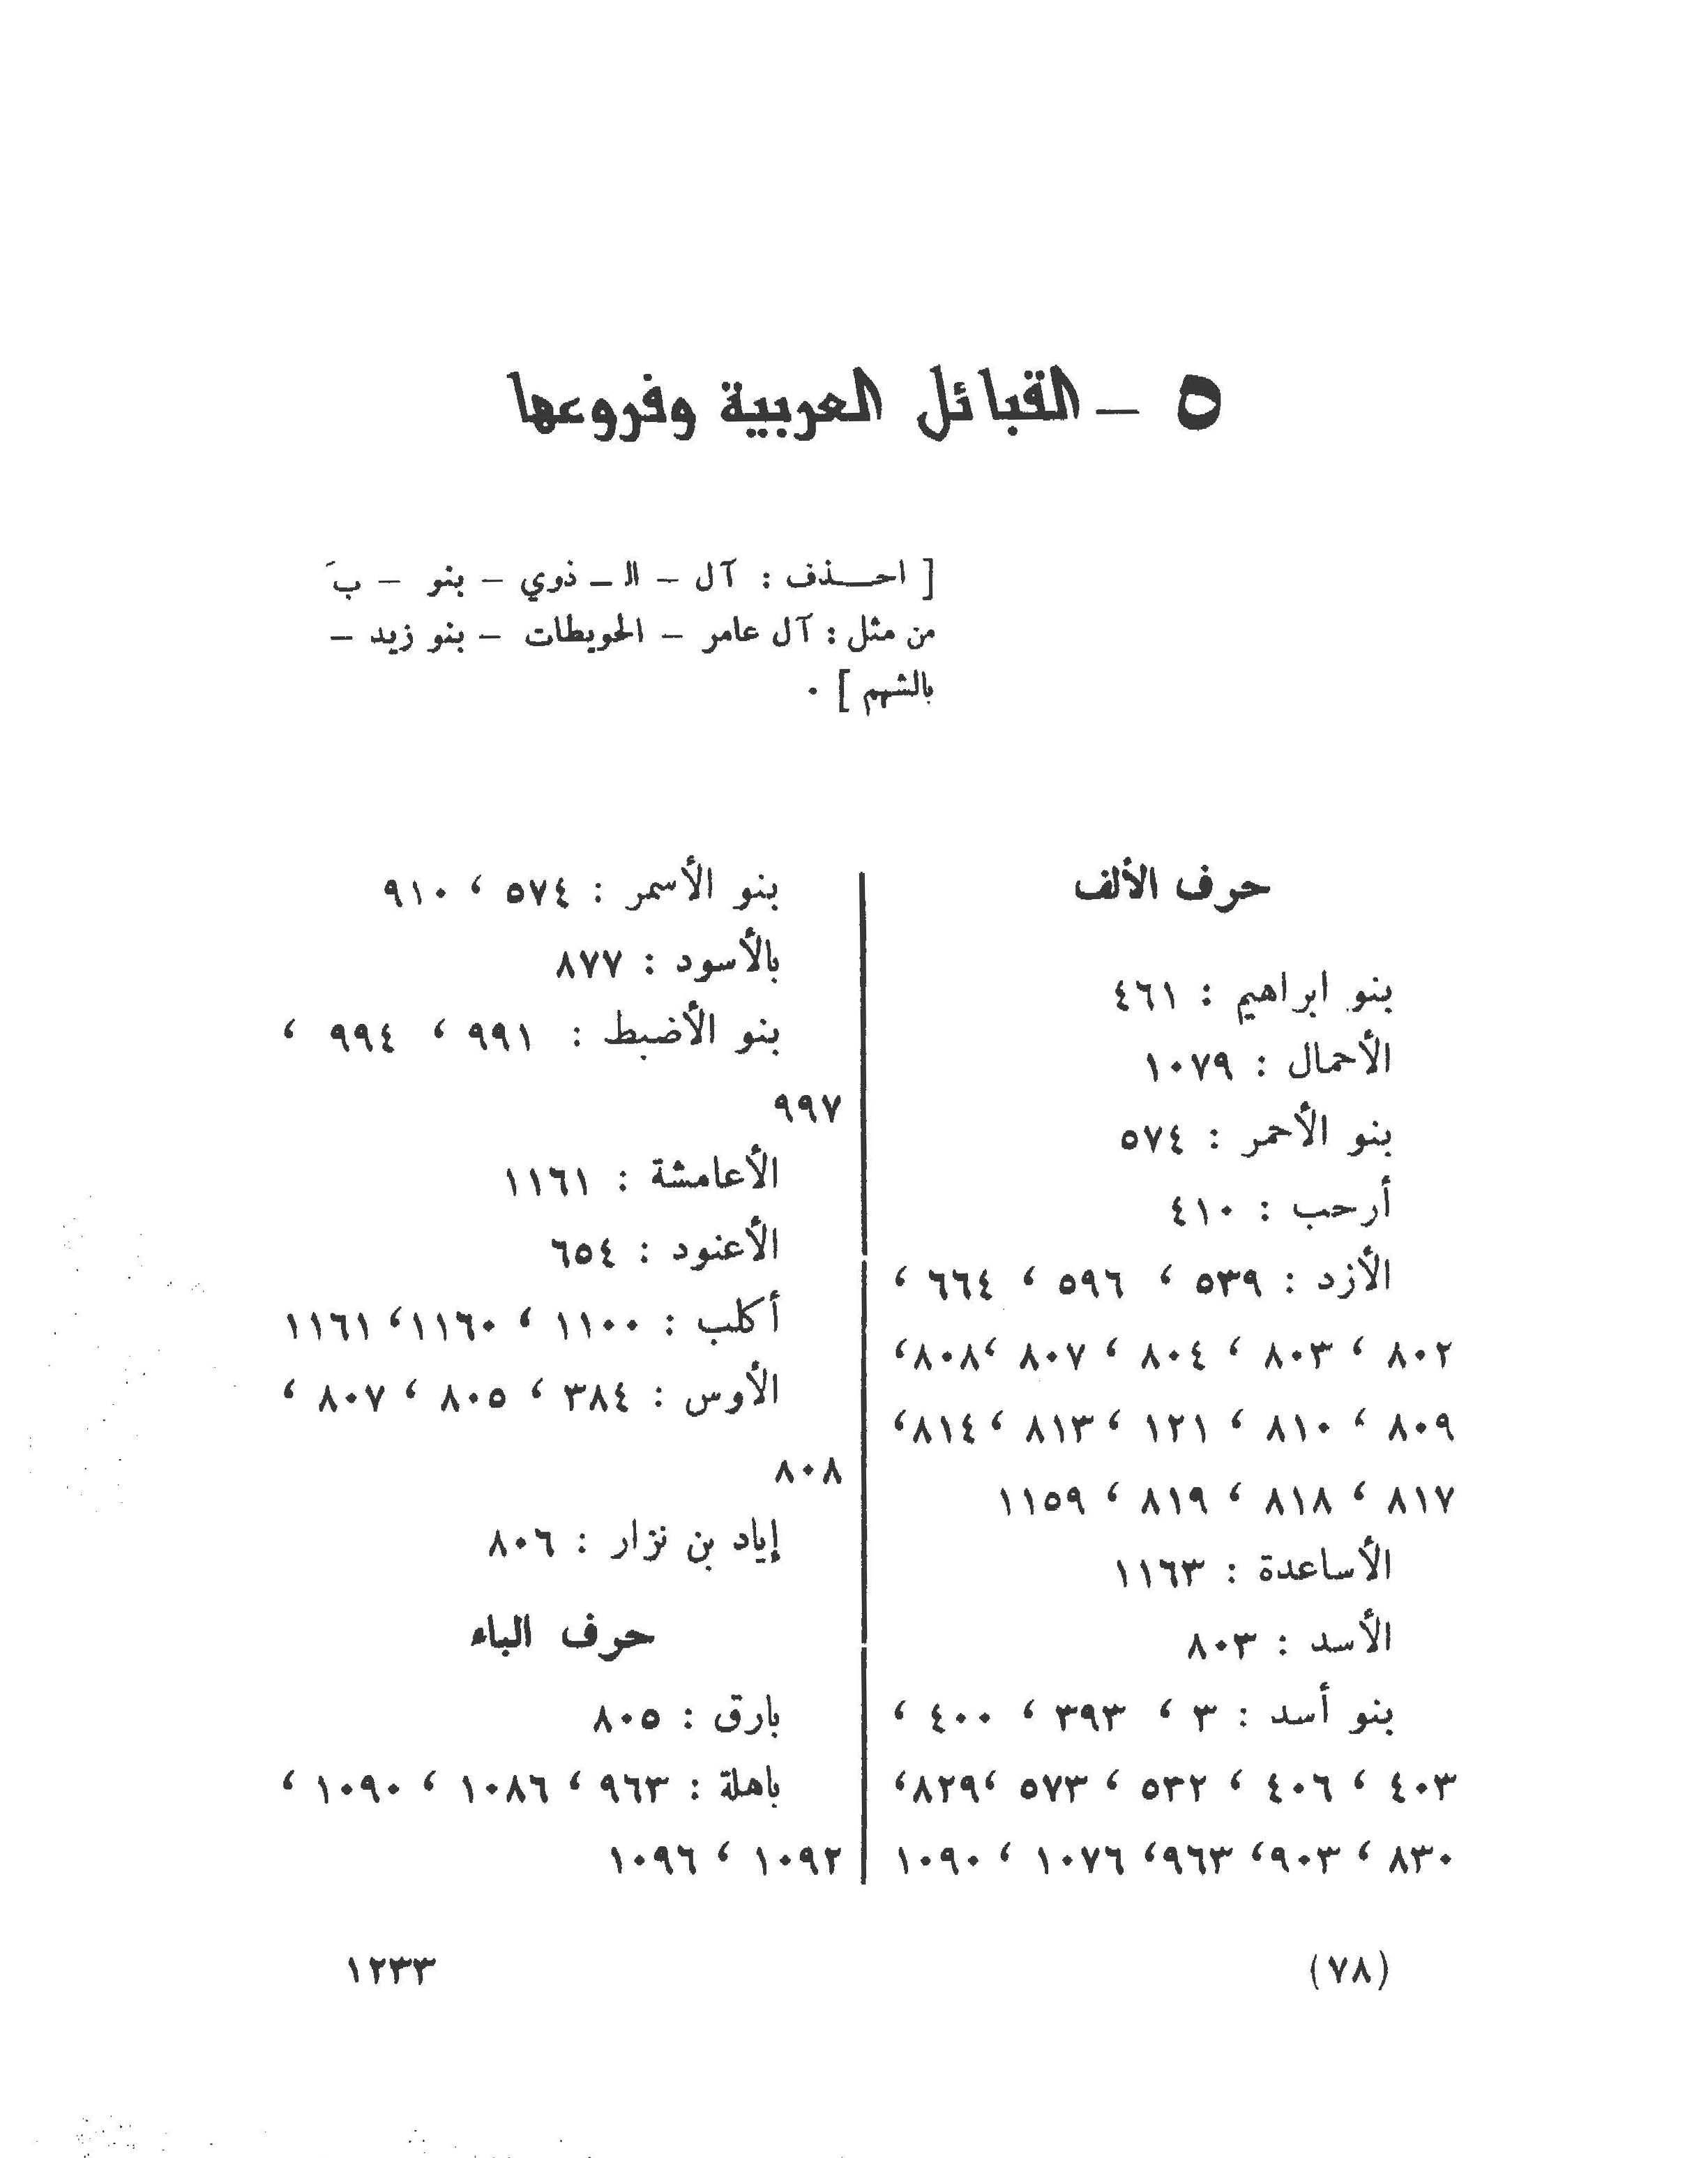 ٥ – القبائل العربية وفروعها
[ احـــذف : آل – الـ – ذوي – بنو – بَ
من مثل : آل عامر – الحويطات – بنو زيد –
بالشهم ] .
حرف الألف
بنو ابراهيم : ٤٦١
الأحمال : ١٠٧٩
بنو الأحمر : ٥٧٤
أرحب : ٤١٠
الأزد : ٥٣٩ ، ٥٩٦ ، ٦٦٤ ،
٨٠٢ ، ٨٠٣ ، ٨٠٤ ، ٨٠٧ ،٨٠٨،
٨٠٩ ، ٨١٠ ، ١٢١ ، ٨١٣ ،٨١٤،
٨١٧ ، ٨١٨ ، ٨١٩ ، ١١٥٩
الأساعدة : ١١٦٣
الأسد : ٨٠٣
بنو أسد : ٣ ، ٣٩٣ ، ٤٠٠ ،
٤٠٣ ، ٤٠٦ ، ٥٣٢ ، ٥٧٣ ،٨٢٩،
٨٣٠ ، ٩٠٣، ٩٦٣، ١٠٧٦ ، ١٠٩٠
بنو الأسمر : ٥٧٤ ، ٩١٠
بالأسود : ٨٧٧
بنو الأضبط : ٩٩١ ، ٩٩٤ ،
٩٩٧
الأعامشة : ١١٦١
الأعنود : ٦٥٤
أكلب : ١١٠٠ ، ١١٦٠، ١١٦١
الأوس : ٣٨٤ ، ٨٠٥ ، ٨٠٧ ،
٨٠٨
إياد بن نزار : ٨٠٦
حرف الباء
بارق : ٨٠٥
باهلة : ٩٦٣ ، ١٠٨٦ ، ١٠٩٠ ،
١٠٩٢ ، ١٠٩٦
(٧٨)
١٢٣٣